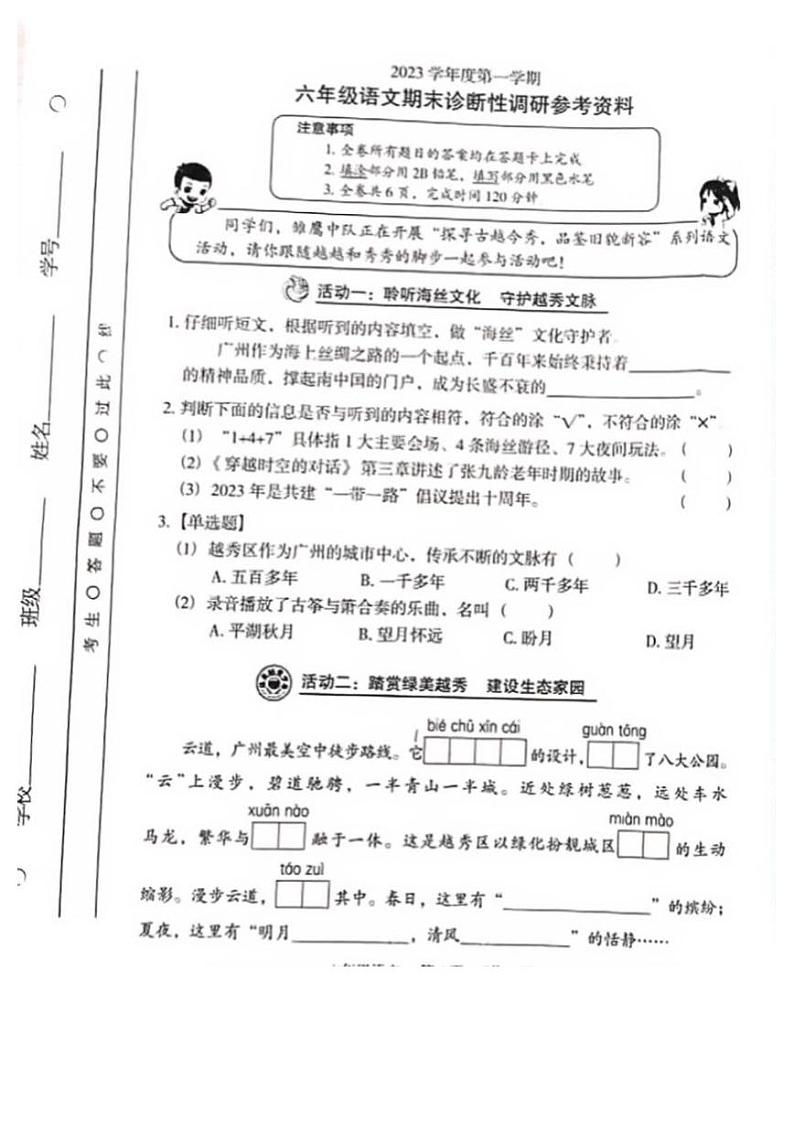 2023 学年度第一学期
六年级语文期末诊断性调研参考资料
注意事项
1. 全卷所有题目的答案均在答题卡上完成
2. 填涂部分用 2B 铅笔，填写部分用黑色水笔
3. 全卷共 6 页，完成时间 120 分钟
同学们，雏鹰中队正在开展“探寻古越今秀，品鉴旧貌新容”系列语文
活动，请你跟随越越和秀秀的脚步一起参与活动吧！
活动一：聆听海丝文化 守护越秀文脉
1. 仔细听短文，根据听到的内容填空，做“海丝”文化守护者。
广州作为海上丝绸之路的一个起点，千百年来始终秉持着____________
的精神品质，撑起南中国的门户，成为长盛不衰的________________。
2. 判断下面的信息是否与听到的内容相符，符合的涂“√”，不符合的涂“×”
(1) “1+4+7”具体指 1 大主要会场、4 条海丝游径、7 大夜间玩法。（ ）
(2)《穿越时空的对话》第三章讲述了张九龄老年时期的故事。（ ）
(3) 2023 年是共建“一带一路”倡议提出十周年。（ ）
3.【单选题】
(1) 越秀区作为广州的城市中心，传承不断的文脉有（ ）
A. 五百多年 B. 一千多年 C. 两千多年 D. 三千多年
(2) 录音播放了古筝与箫合奏的乐曲，名叫（ ）
A. 平湖秋月 B. 望月怀远 C. 盼月 D. 望月
活动二：踏赏绿美越秀 建设生态家园
bié chū xīn cái guàn tōng
云道，广州最美空中徒步路线。它 的设计， 了八大公园。
“云”上漫步，碧道驰骋，一半青山一半城。近处绿树葱葱，远处车水
xuān nào miàn mào
马龙，繁华与 融于一体。这是越秀区以绿化扮靓城区 的生动
táo zuì
缩影。漫步云道， 其中。春日，这里有“________________”的缤纷；
夏夜，这里有“明月____________，清风____________”的恬静……
学校________班级________姓名________学号________
考 生 〇 答 题 〇 不 要 〇 过 此 〇 线